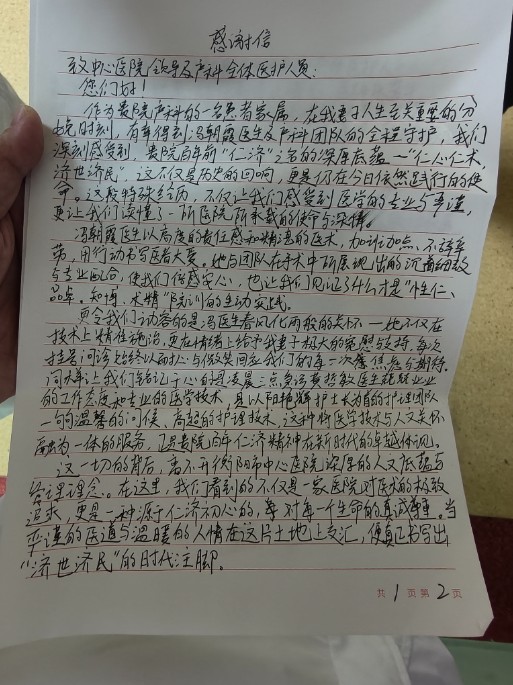 感谢信
致中心医院领导及产科全体医护人员：
您们好！
作为贵院产科的一名患者家属，在我妻子人生至关重要的分
娩时刻，有幸得到冯朝霞医生及产科团队的全程守护，我们
深刻感受到，贵院百年前“仁济”之名的深厚底蕴—“仁心仁术，
济世济民”。这不仅是历史的回响，更是仍在今日依然践行的使
命。这段特殊经历，不仅让我们感受到医学的专业与严谨，
更让我们读懂了一所医院所承载的使命与深情。
冯朝霞医生以高度的责任感和精湛的医术，加班加点、不辞辛
劳，用行动书写医者大爱。她与团队在手术中所展现出的沉着细致
与专业配合，使我们倍感安心，也让我们见证了什么才是“性仁、
品卓、知博、术精”院训的生动实践。
更令我们动容的是冯医生春风化雨般的关怀—她不仅在
技术上精准施治，更在情绪上给予我妻子极大的宽慰与支持，每次
查房问诊始终以耐心与微笑回应我们的每一次焦虑与期待。
同样让我们铭记于心的是凌晨三点多
的工作态度和专业的医学技术，且以阳艳辉护士长为首的护理团队
一句句温馨的问候、高超的护理技术，这种将医学技术与人文关怀
融为一体的服务，正是贵院百年仁济精神在新时代的卓越体现。
这一切的背后，离不开衡阳市中心医院深厚的人文底蕴与
管理理念。在这里，我们看到的不仅是一家医院对医术的极致
追求，更是一种源于仁济初心的，对每一个生命的真诚尊重。当
严谨的医道与温暖的人情在这片土地上交汇，便真正书写出
“济世济民”的时代注脚。
共1页第2页